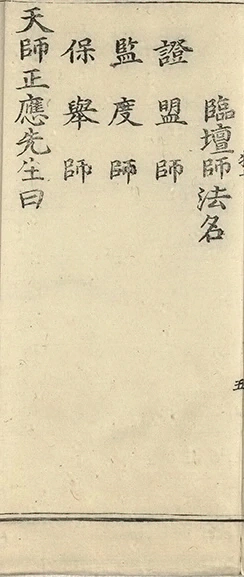 臨壇師法名
證盟師
監度師
保舉師
天師正應先生曰
五